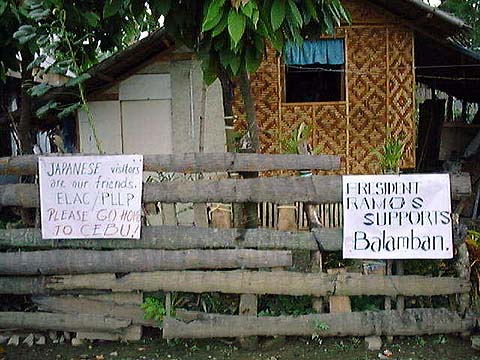 JAPANESE visitors
are our friends.
ELAC/PLLP
PLEASE GO HOME
TO CEBU!
PRESIDENT
RAMOS
SUPPORTS
Balamban.